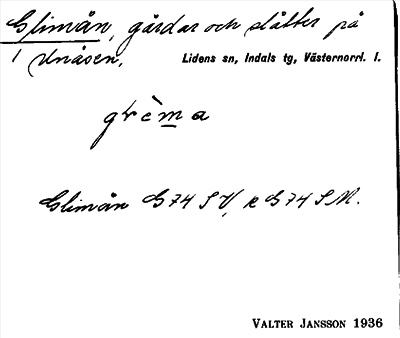 Glimån, gårdar och slåtter på
Unåsen, Lidens sn, Indals tg, Västernorrl. l.
grèma
Glimån G 74 S V, k G 74 S M.
VALTER JANSSON 1936